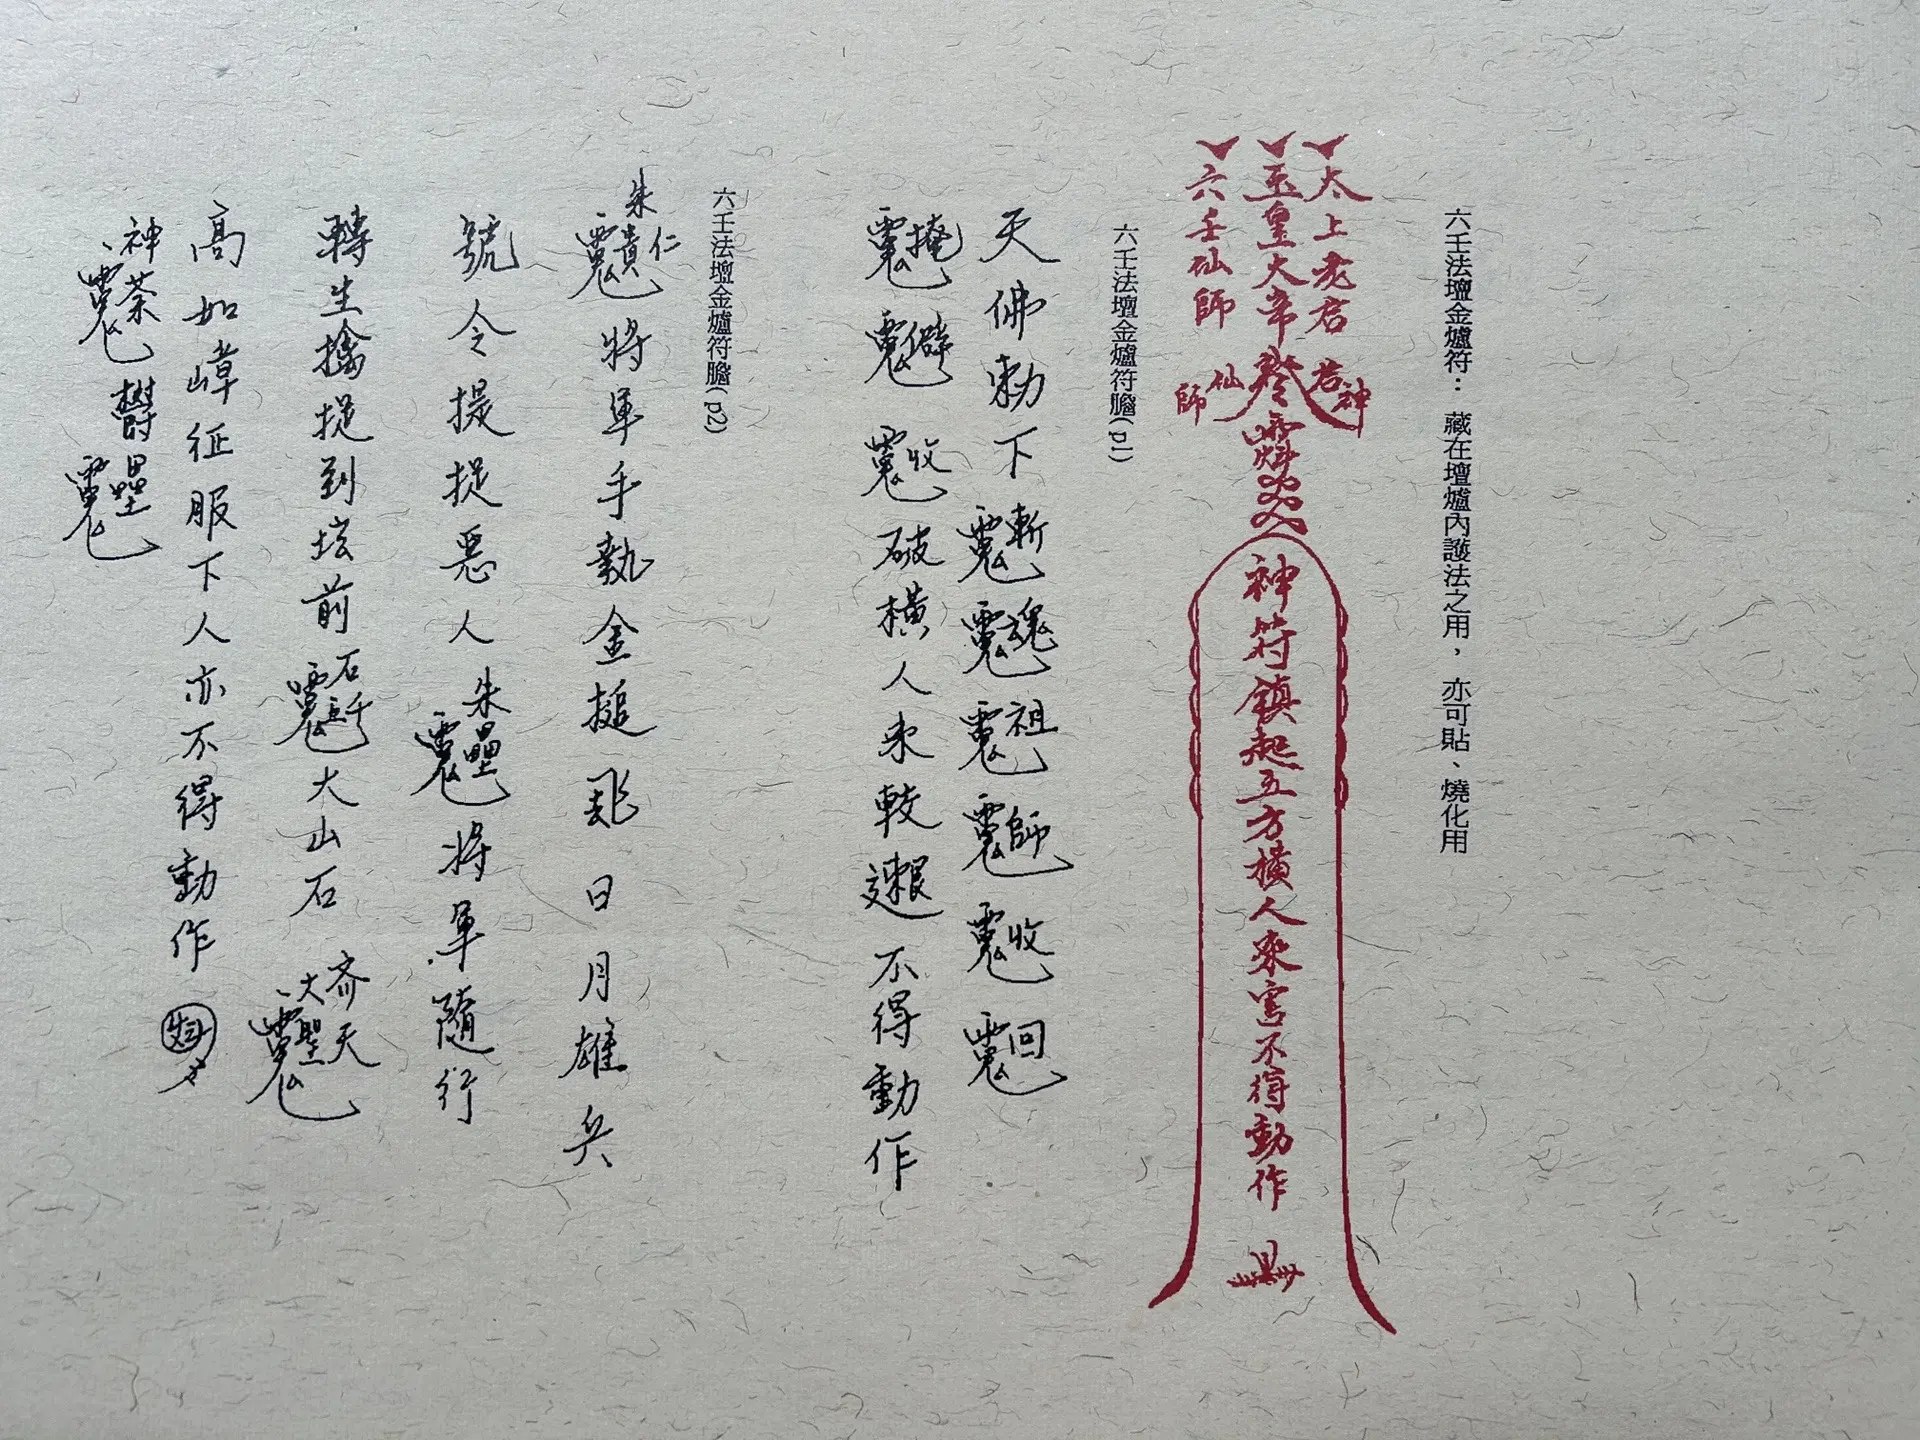 六壬法壇金爐符： 藏在壇爐內護法之用， 亦可貼、燒化用
太上老君
玉皇大帝
六壬仙師
君神
仙師
神符鎮起五方橫人來害不得動作
六壬法壇金爐符膽(p1)
天佛勅下 斬 魂 祖 師 收 回
掩 僻 收 破橫人來較 不得動作
六壬法壇金爐符膽(p2)
朱貴仁 將軍手執金搥 日月雄兵
號令提捉惡人 朱壘 將軍隨行
轉生擒捉到坛前 石 大山石 齐天大聖
高如嶂征服下人亦不得動作
神荼 鬱壘